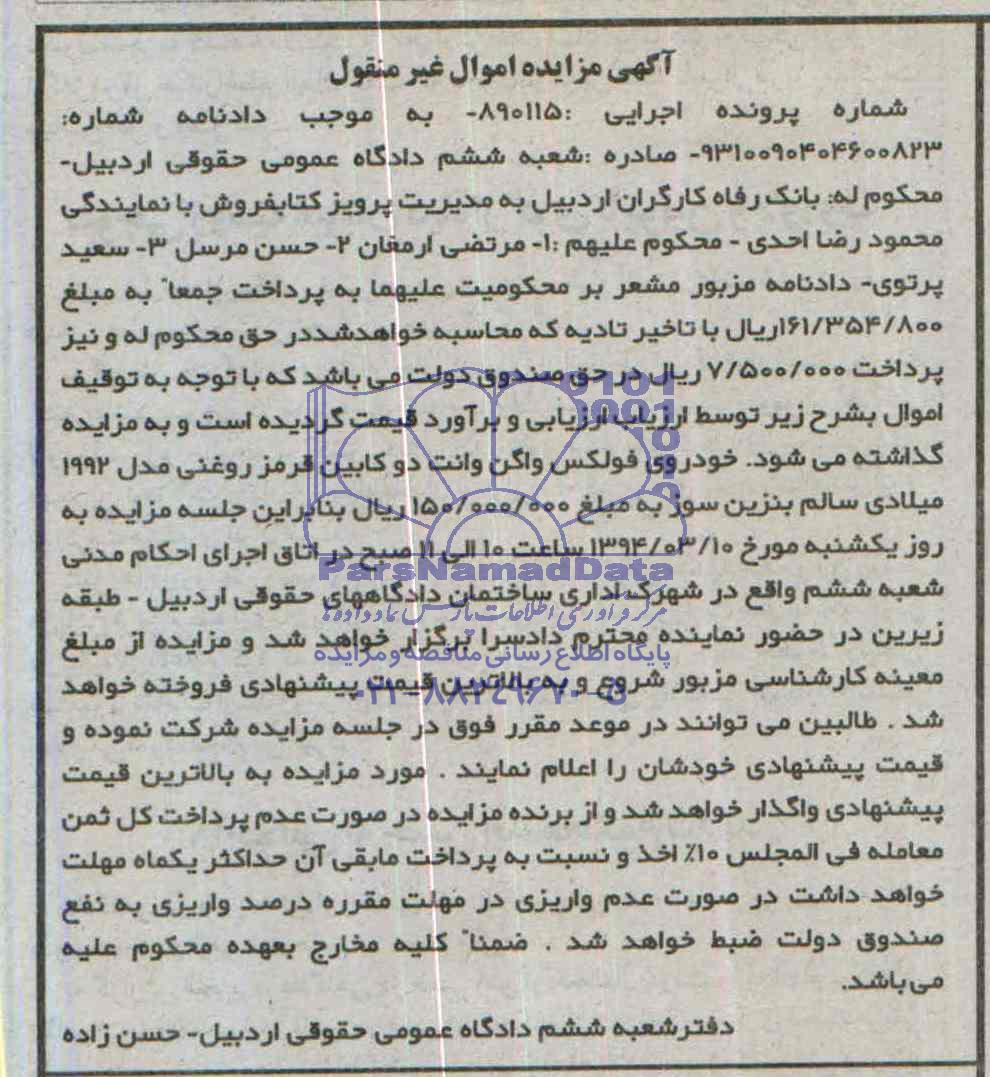 آگهی مزایده اموال غیر منقول
شماره پرونده اجرایی :۸۹۰۱۱۵- به موجب دادنامه شماره:
۹۳۱۰۰۹۰۴۰۴۶۰۰۸۲۳- صادره :شعبه ششم دادگاه عمومی حقوقی اردبیل-
محکوم له: بانک رفاه کارگران اردبیل به مدیریت پرویز کتابفروش با نمایندگی
محمود رضا احدی - محکوم علیهم :۱- مرتضی ارمغان ۲- حسن مرسل ۳- سعید
پرتوی- دادنامه مزبور مشعر بر محکومیت علیهما به پرداخت جمعاً به مبلغ
۱۶۱/۳۵۴/۸۰۰ریال با تاخیر تادیه که محاسبه خواهدشددر حق محکوم له و نیز
پرداخت ۷/۵۰۰/۰۰۰ ریال در حق صندوق دولت می باشد که با توجه به توقیف
اموال بشرح زیر توسط ارزیاب ارزیابی و برآورد قیمت گردیده است و به مزایده
گذاشته می شود. خودروی فولکس واگن وانت دو کابین قرمز روغنی مدل ۱۹۹۲
میلادی سالم بنزین سوز به مبلغ ۱۵۰/۰۰۰/۰۰۰ ریال بنابراین جلسه مزایده به
روز یکشنبه مورخ ۱۳۹۴/۰۳/۱۰ ساعت ۱۰ الی ۱۱ صبح در اتاق اجرای احکام مدنی
ParsNamadData
شعبه ششم واقع در شهرک اداری ساختمان دادگاههای حقوقی اردبیل - طبقه
زیرین در حضور نماینده محترم دادسرا برگزار خواهد شد و مزایده از مبلغ
پایگاه اطلاع رسانی مناقصه و مزایده
معینه کارشناسی مزبور شروع و به بالاترین قیمت پیشنهادی فروخته خواهد
۰۲۱-۸۸۳۴۹۶۷۰-۵
شد . طالبین می توانند در موعد مقرر فوق در جلسه مزایده شرکت نموده و
قیمت پیشنهادی خودشان را اعلام نمایند . مورد مزایده به بالاترین قیمت
پیشنهادی واگذار خواهد شد و از برنده مزایده در صورت عدم پرداخت کل ثمن
معامله فی المجلس ۱۰٪ اخذ و نسبت به پرداخت مابقی آن حداکثر یکماه مهلت
خواهد داشت در صورت عدم واریزی در مهلت مقرره درصد واریزی به نفع
صندوق دولت ضبط خواهد شد . ضمناً کلیه مخارج بعهده محکوم علیه
می‌باشد.
دفترشعبه ششم دادگاه عمومی حقوقی اردبیل- حسن زاده